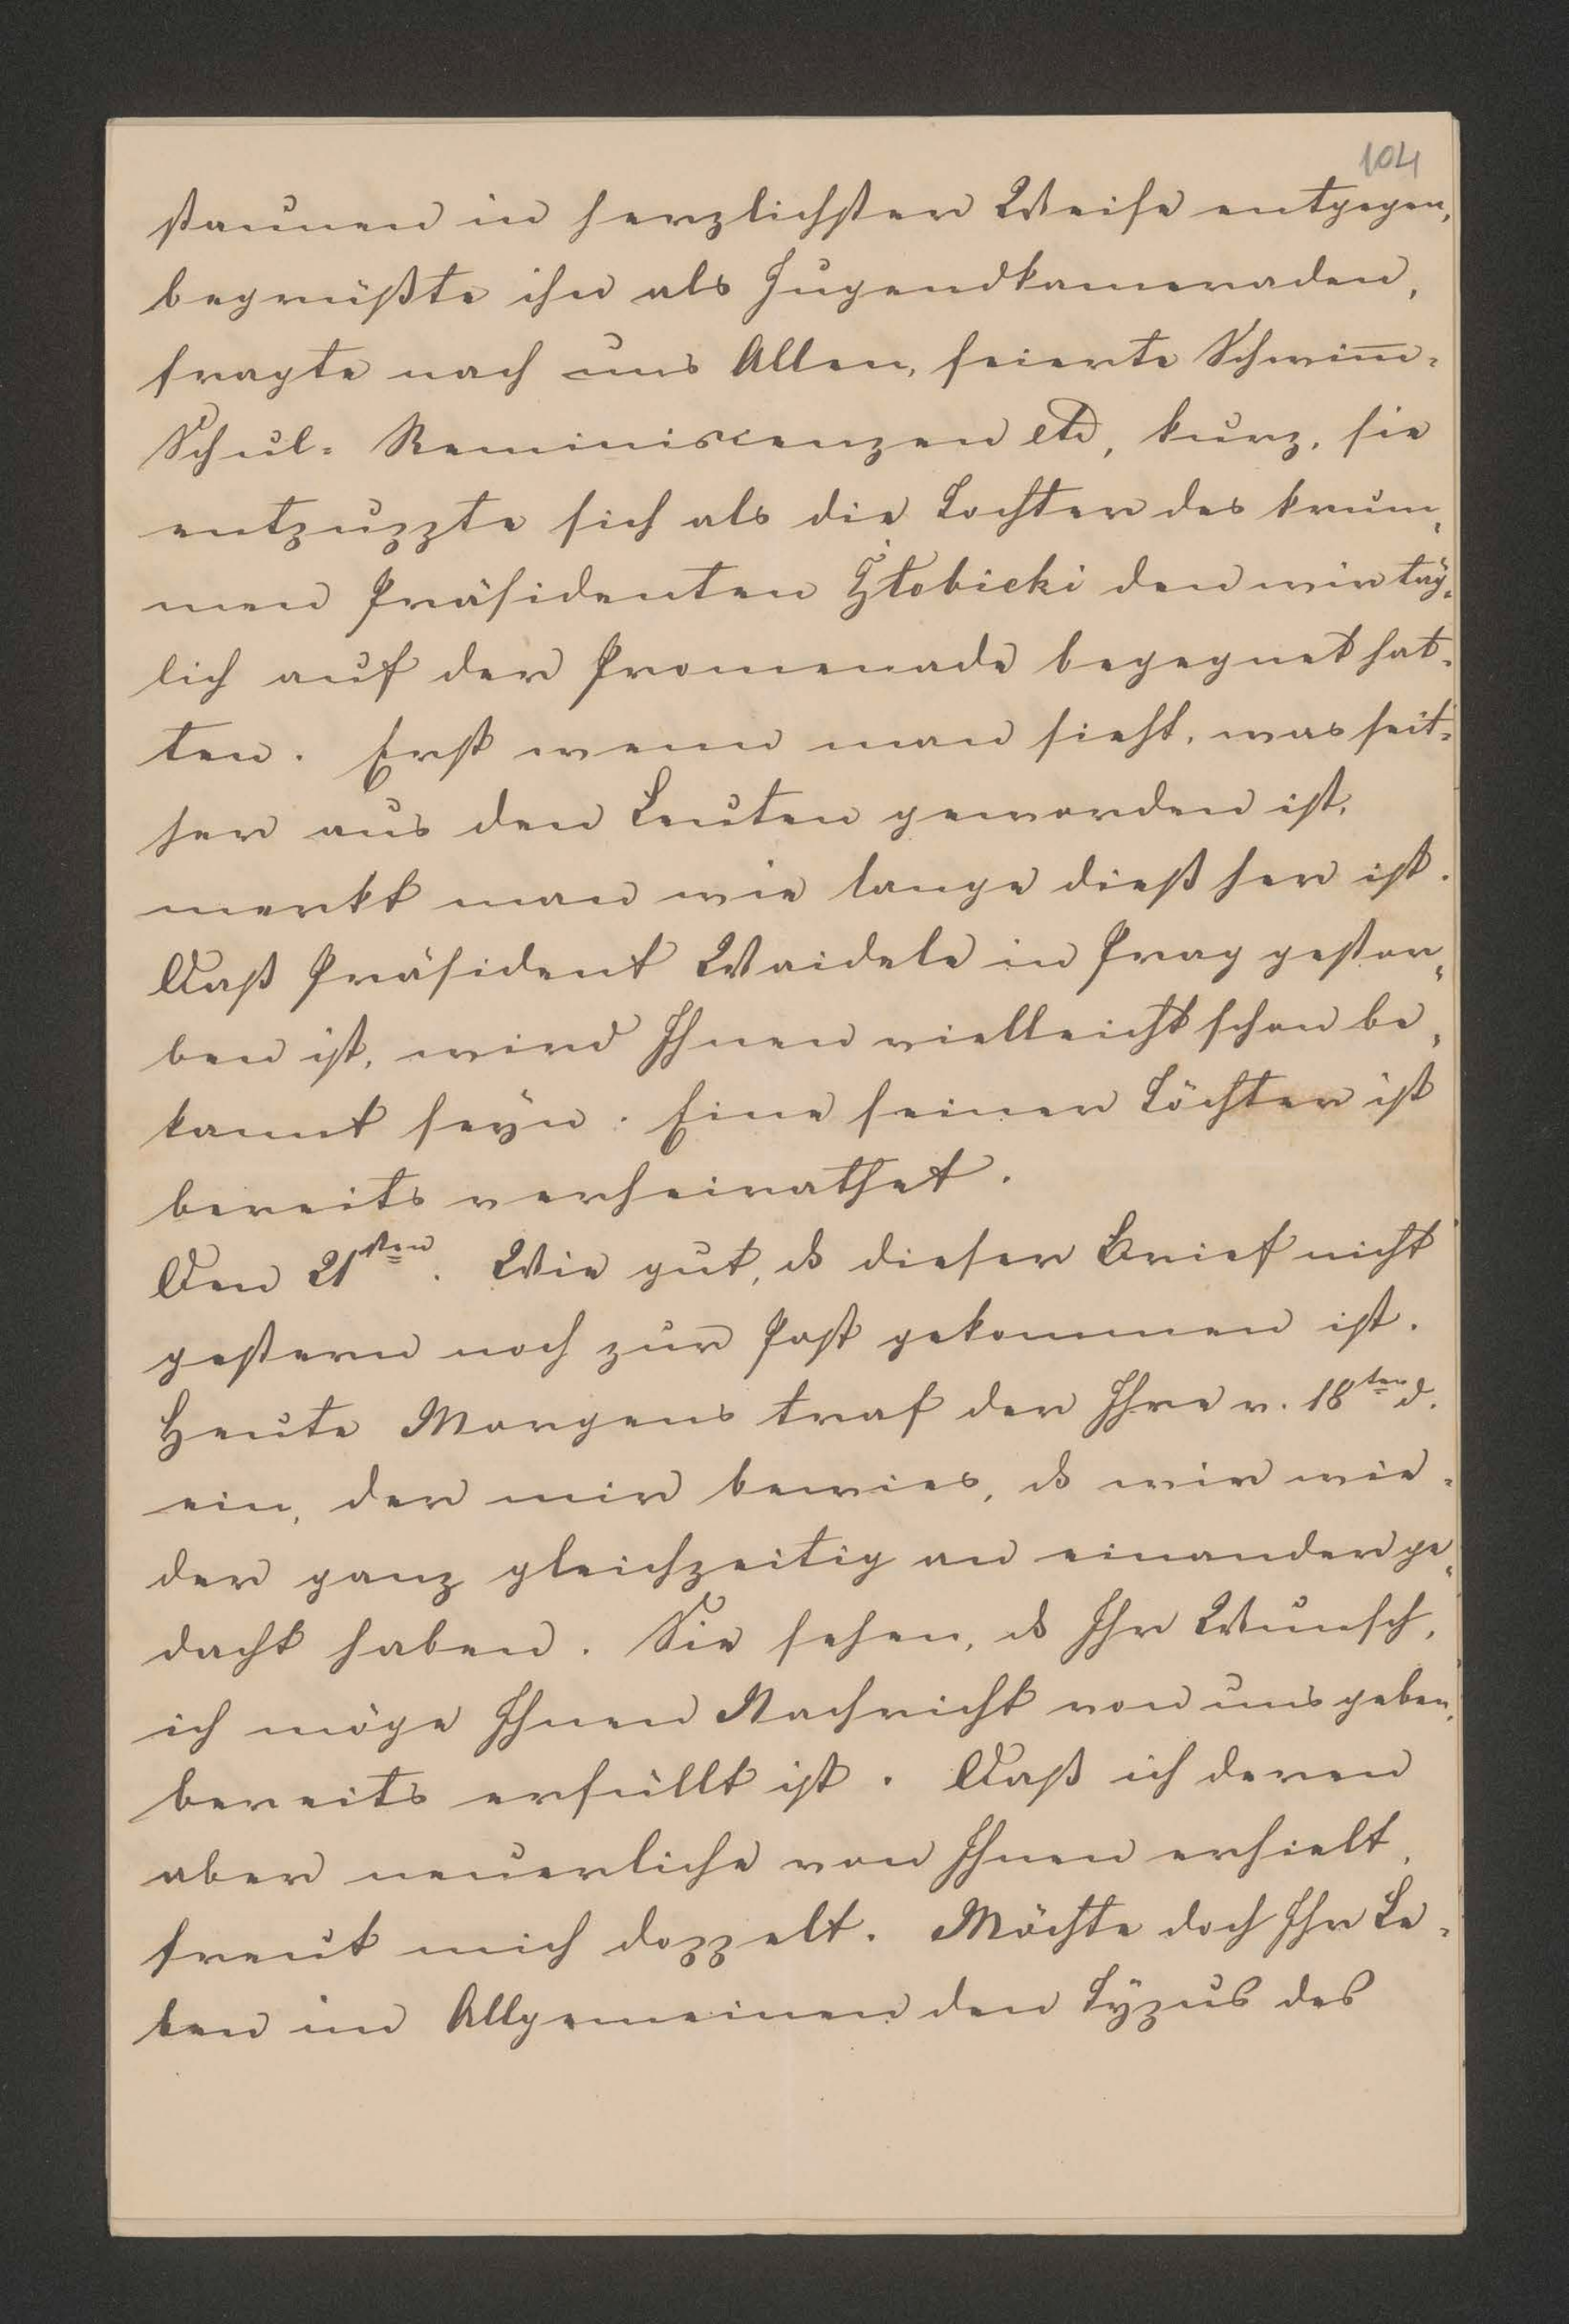 104
staunen in herzlichster Weise entgegen,
begrüßte ihn als Jugendkameraden,
fragte nach uns Allen, feierte Schwim̅-
Schul-Reminiscenzen etc, kurz, sie
entpuppte sich als die Tochter des krum-
men Präsidenten Złobicki den wir täg-
lich auf der Promenade begegnet hat-
ten. Erst wenn man sieht, was seit-
her aus den Leuten geworden ist,
merkt man wie lange dieß her ist.
Daß Präsident Waidele in Prag gestor-
ben ist, wird Ihnen vielleicht schon be-
kannt seyn. Eine seiner Töchter ist
bereits verheirathet.
Den 21sten. Wie gut, dß dieser Brief nicht
gestern noch zur Post gekommen ist.
Heute Morgens traf der Ihre v. 18ten d.
ein, der mir bewies, dß wir wie-
der ganz gleichzeitig an einander ge-
dacht haben. Sie sehen, dß Ihr Wunsch,
ich möge Ihnen Nachricht von uns geben,
bereits erfüllt ist. Daß ich deren
aber neuerliche von Ihnen erhielt,
freut mich doppelt. Möchte doch Ihr Le-
ben im Allgemeinen den Typus des